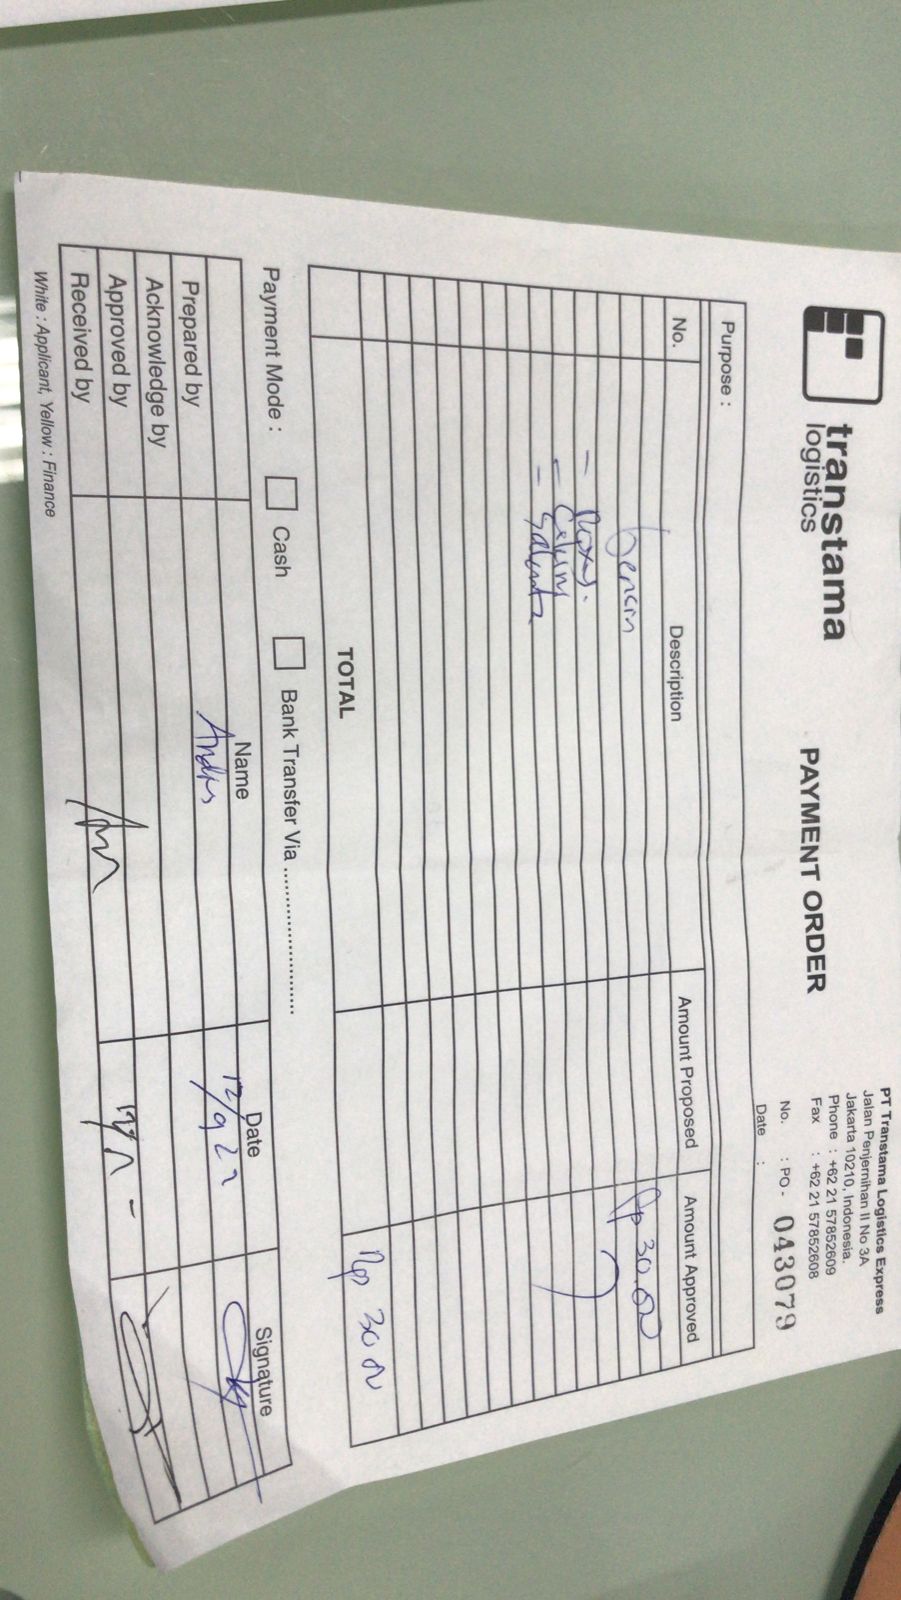 transtama
logistics
PAYMENT ORDER
PT Transtama Logistics Express
Jalan Penjernihan II No 3A
Jakarta 10210, Indonesia.
Phone : +62 21 57852609
Fax : +62 21 57852608
No. : PO - 043079
Date :
Purpose :
No. Description Amount Proposed Amount Approved
bensin Rp 30.000
-
-
-
TOTAL Rp 30
Payment Mode : Cash Bank Transfer Via ..........................
Name Date Signature
Prepared by 12/9 22
Acknowledge by
Approved by
Received by
White : Applicant, Yellow : Finance